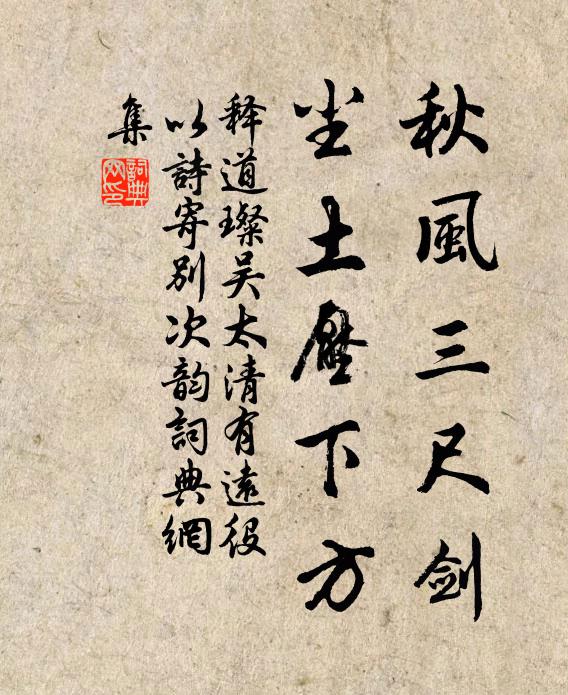 秋風三尺剑
尘土壓下方
释道璨吴太清有遠役
以詩寄别次韵詞典網
集
詞典
网印